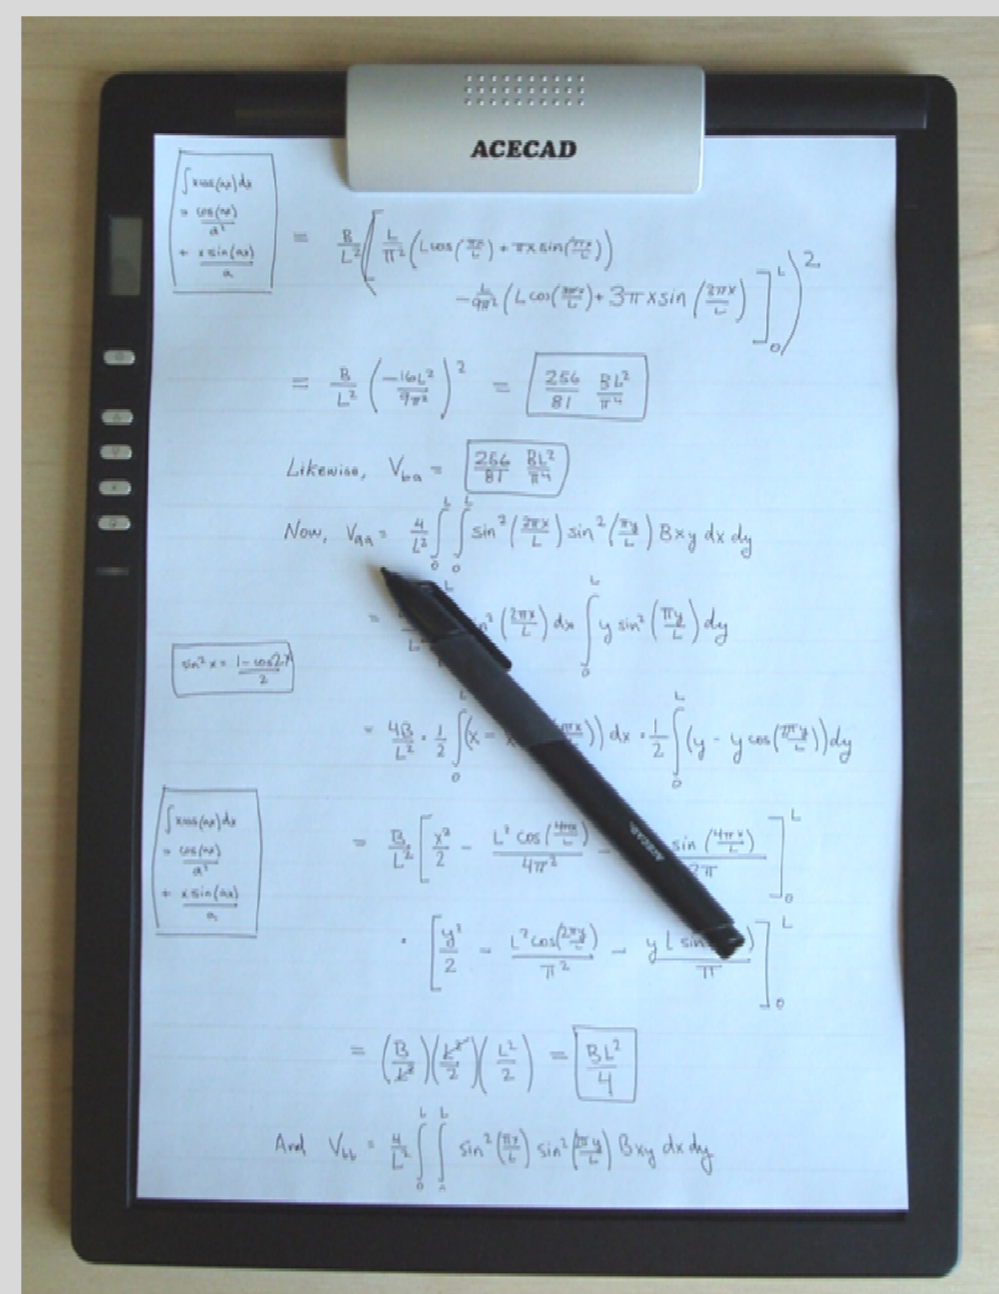 ACECAD
∫ x cos(ax) dx
= cos(ax)/a²
+ x sin(ax)/a
= B/L² ( [ L/π² ( L cos(πx/L) + πx sin(πx/L) )
- L/9π² ( L cos(3πx/L) + 3πx sin(3πx/L) ) ]₀ᴸ )²
= B/L² ( -16L²/9π² )² = 256/81 BL²/π⁴
Likewise, V_ba = 256/81 BL²/π⁴
Now, V_aa = 4/L² ∫₀ᴸ ∫₀ᴸ sin²(2πx/L) sin²(πy/L) Bxy dx dy
= (2πx/L) dx ∫₀ᴸ y sin²(πy/L) dy
sin² x = 1 - cos 2x / 2
= 4B/L² · 1/2 ∫₀ᴸ (x - )) dx · 1/2 ∫₀ᴸ (y - y cos(2πy/L)) dy
∫ x cos(ax) dx
= cos(ax)/a²
+ x sin(ax)/a
= B/L² [ x²/2 - L² cos(4πx/L)/4π² - sin(4πx/L) / 2π ]₀ᴸ
· [ y²/2 - L² cos(2πy/L)/π² - y L sin / π ]₀ᴸ
ACECAD
= (B/L²)(L²/2)(L²/2) = BL²/4
And V_bb = 4/L² ∫₀ᴸ ∫₀ᴸ sin²(πx/L) sin²(2πy/L) Bxy dx dy